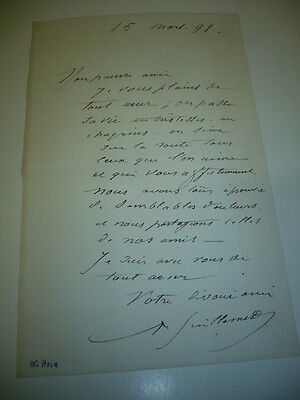 15 Mars. 98.
Mon pauvre ami
Je vous plains de
tout cœur ; on passe
sa vie en tristesses. en
chagrins. on sème
sur la route tous
ceux que l'on aime
et qui vous affectionnent,
nous avons tous éprouvé
de semblables douleurs.
et nous partageons celles
de nos amis —
Je suis avec vous de
tout cœur
Votre dévoué ami
A Guillemet